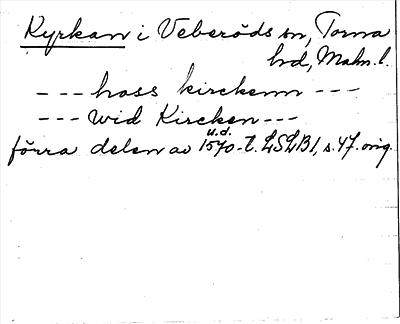 Kyrkan i Veberöds sn, Torna
hd, Malm. l.
--- hoss kirckenn ---
--- wid Kircken ---
u.d.
förra delen av 1570-t. LSLB1, s. 47. orig.